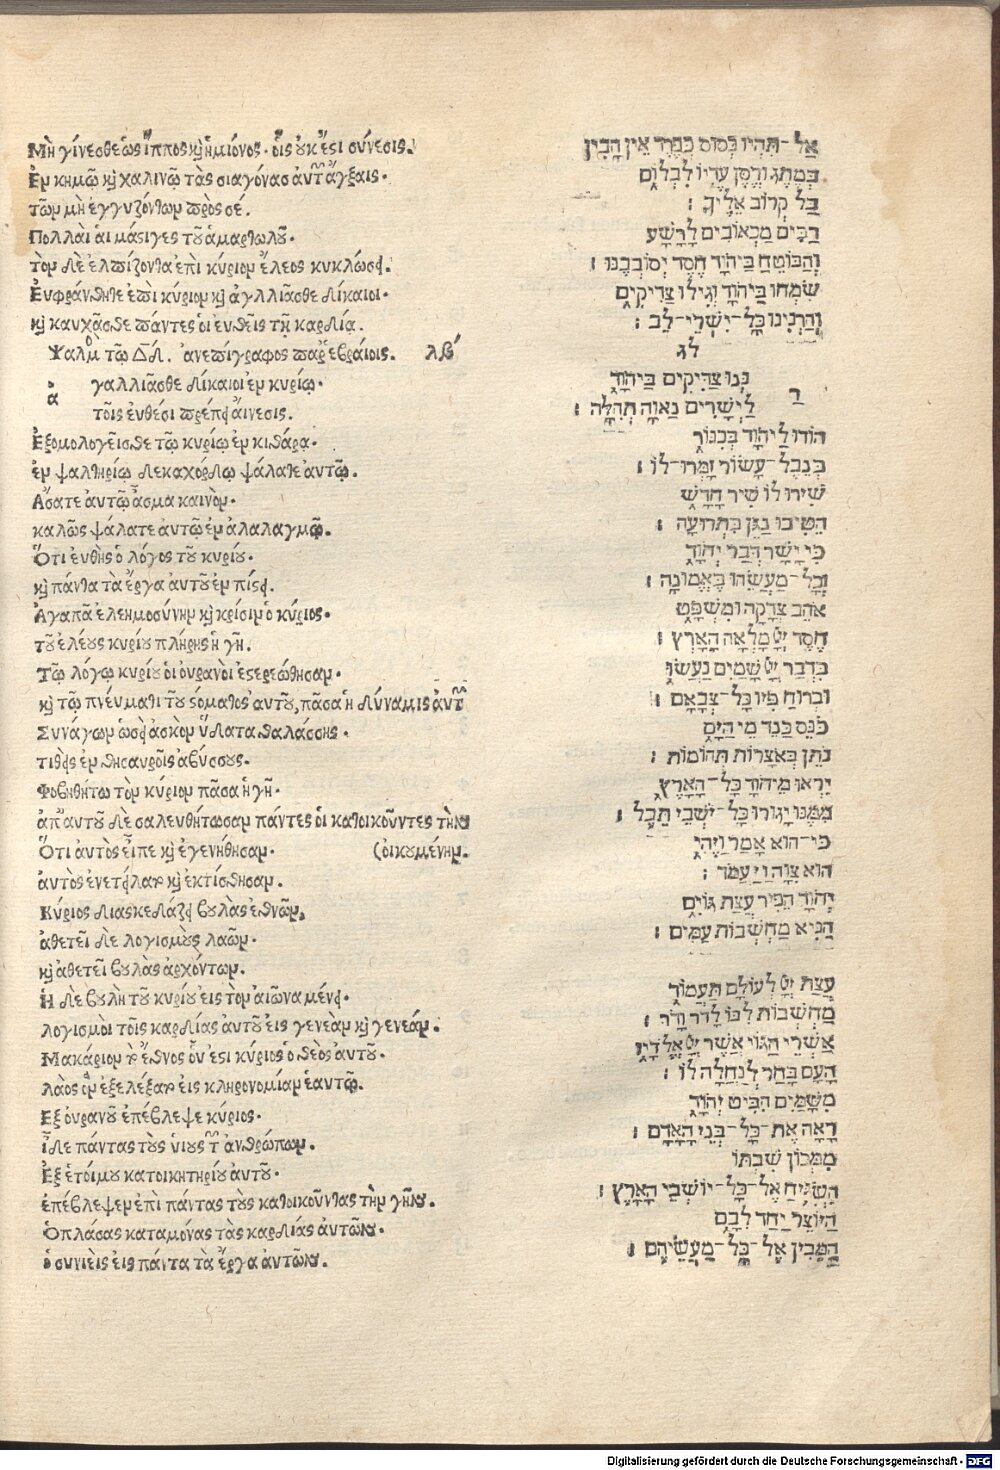 Μὴ γίνεσθε ὡς ἵππος κὴ ἡμίονος· οἷς οὐκ ἔστι σύνεσις.
Ἐν κημῷ κὴ χαλινῷ τὰς σιαγόνας αὐτῶν ἄγξαις·
τῶν μὴ ἐγγυζόντων πρὸς σέ.
Πολλαὶ αἱ μάστιγες τοῦ ἁμαρτωλοῦ·
τὸν δὲ ἐλπίζοντα ἐπὶ κύριον ἔλεος κυκλώσει.
Ἐυφράνθητε ἐπὶ κύριον κὴ ἀγαλλιᾶσθε δίκαιοι·
κὴ καυχᾶσθε πάντες οἱ ἐυθεῖς τῇ καρδίᾳ.
Ψαλμὸς τῷ Δαδ. ἀνεπίγραφος παρ' ἑβραίοις. λβʹ
ἀ γαλλιᾶσθε δίκαιοι ἐν κυρίῳ·
τοῖς ἐυθέσι πρέπει ἄινεσις.
Ἐξομολογεῖσθε τῷ κυρίῳ ἐν κιθάρᾳ·
ἐν ψαλτηρίῳ δεκαχόρδῳ ψάλατε ἀυτῷ.
Ἄσατε ἀυτῷ ᾆσμα καινὸν·
καλῶς ψάλατε ἀυτῷ ἐν ἀλαλαγμῷ.
Ὅτι ἐυθὴς ὁ λόγος τοῦ κυρίου·
κὴ πάντα τὰ ἔργα ἀυτοῦ ἐν πίστει.
Ἀγαπᾷ ἐλεημοσύνην κὴ κρίσιν ὁ κύριος·
τοῦ ἐλέους κυρίου πλήρης ἡ γῆ.
Τῷ λόγῳ κυρίου οἱ ὀυρανοὶ ἐστερεώθησαν·
κὴ τῷ πνέυματι τοῦ στόματος ἀυτοῦ, πᾶσα ἡ δύναμις ἀυτῶν
Συνάγων ὡσεὶ ἀσκὸν ὕδατα θαλάσσης·
τιθεὶς ἐν θησαυροῖς ἀβύσσους.
Φοβηθήτω τὸν κύριον πᾶσα ἡ γῆ·
ἀπ' ἀυτοῦ δὲ σαλευθήτωσαν πάντες οἱ κατοικοῦντες τὴν
Ὅτι ἀυτὸς εἶπε κὴ ἐγενήθησαν· (ὀικουμένην.
ἀυτὸς ἐνετείλατο κὴ ἐκτίσθησαν.
Κύριος διασκεδάζει βουλὰς ἐθνῶν,
ἀθετεῖ δὲ λογισμοὺς λαῶν·
κὴ ἀθετεῖ βουλὰς ἀρχόντων.
Ἡ δὲ βουλὴ τοῦ κυρίου εἰς τὸν αἰῶνα μένει·
λογισμοὶ τῆς καρδίας ἀυτοῦ εἰς γενεὰν κὴ γενεάν.
Μακάριον τὸ ἔθνος οὗ ἐστι κύριος ὁ θεὸς ἀυτοῦ·
λαὸς ὃν ἐξελέξατο εἰς κληρονομίαν ἑαυτῷ.
Ἐξ ὀυρανοῦ ἐπέβλεψε κύριος·
ἶδε πάντας τοὺς ὑιοὺς τῶν ἀνθρώπων.
Ἐξ ἑτοίμου κατοικητηρίου ἀυτοῦ·
ἐπέβλεψεν ἐπὶ πάντας τοὺς κατοικοῦντας τὴν γῆν.
Ὁ πλάσας καταμόνας τὰς καρδίας ἀυτῶν·
ὁ συνιεὶς εἰς πάντα τὰ ἔργα ἀυτῶν.
אַל־תִּהְיוּ כְּסוּס כְּפֶרֶד אֵין הָבִין
בְּמֶתֶג וָרֶסֶן עֶדְיוֹ לִבְלוֹם
בַּל קְרוֹב אֵלֶיךָ :
רַבִּים מַכְאוֹבִים לָרָשָׁע
וְהַבּוֹטֵחַ בַּיהוָֹד חֶסֶד יְסוֹבְבֶנּוּ :
שִׂמְחוּ בַיהוָֹד וְגִילוּ צַדִּיקִים
וְהַרְנִינוּ כָּל־יִשְׁרֵי־לֵב :
לג
ר נְּנוּ צַדִּיקִים בַּיהוָֹד
לַיְשָׁרִים נָאוָה תְהִלָּה :
הוֹדוּ לַיהוָֹד בְּכִנּוֹר
בְּנֵבֶל־עָשׂוֹר זַמְּרוּ־לוֹ :
שִׁירוּ לוֹ שִׁיר חָדָשׁ
הֵטִיבוּ נַגֵּן בִּתְרוּעָה :
כִּי יָשָׁר דְּבַר יְהוָֹד
וְכָל־מַעֲשֵׂהוּ בֶּאֱמוּנָה :
אֹהֵב צְדָקָה וּמִשְׁפָּט
חֶסֶד יְיָ מָלְאָה הָאָרֶץ :
בִּדְבַר יְיָ שָׁמַיִם נַעֲשׂוּ
וּבְרוּחַ פִּיו כָּל־צְבָאָם :
כֹּנֵס כַּנֵּד מֵי הַיָּם
נֹתֵן בְּאֹצָרוֹת תְּהוֹמוֹת :
יִירְאוּ מֵיהוָֹד כָּל־הָאָרֶץ
מִמֶּנּוּ יָגוּרוּ כָּל־יֹשְׁבֵי תֵבֵל :
כִּי־הוּא אָמַר וַיֶּהִי
הוּא צִוָּה וַיַּעֲמֹד :
יְהוָֹד הֵפִיר עֲצַת גּוֹיִם
הֵנִיא מַחְשְׁבוֹת עַמִּים :
עֲצַת יְיָ לְעוֹלָם תַּעֲמוֹד
מַחְשְׁבוֹת לִבּוֹ לְדֹר וָדֹר :
אַשְׁרֵי הַגּוֹי אֲשֶׁר יְיָ אֱלֹדָיו
הָעָם בָּחַר לְנַחֲלָה לוֹ :
מִשָּׁמַיִם הִבִּיט יְהוָֹד
רָאָה אֶת־כָּל־בְּנֵי הָאָדָם :
מִמְּכוֹן שִׁבְתּוֹ
הִשְׁגִּיחַ אֶל־כָּל־יוֹשְׁבֵי הָאָרֶץ :
הַיּוֹצֵר יַחַד לִבָּם
הַמֵּבִין אֶל־כָּל־מַעֲשֵׂיהֶם :
Digitalisierung gefördert durch die Deutsche Forschungsgemeinschaft - DFG